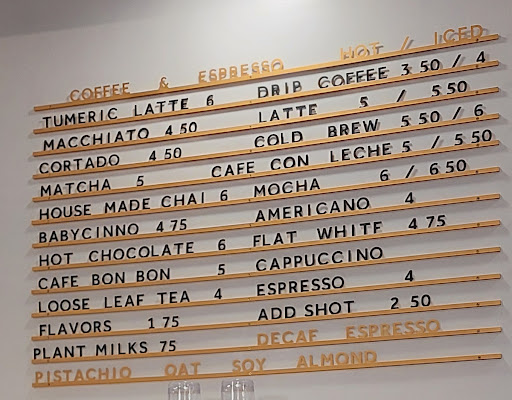 COFFEE & ESPRESSO HOT / ICED
TUMERIC LATTE 6 DRIP COFFEE 3 50 / 4
MACCHIATO 4 50 LATTE 5 / 5 50
CORTADO 4 50 COLD BREW 5 50 / 6
MATCHA 5 CAFE CON LECHE 5 / 5 50
HOUSE MADE CHAI 6 MOCHA 6 / 6 50
BABYCINNO 4 75 AMERICANO 4
HOT CHOCOLATE 6 FLAT WHITE 4 75
CAFE BON BON 5 CAPPUCCINO
LOOSE LEAF TEA 4 ESPRESSO 4
FLAVORS 1 75 ADD SHOT 2 50
PLANT MILKS 75 DECAF ESPRESSO
PISTACHIO OAT SOY ALMOND